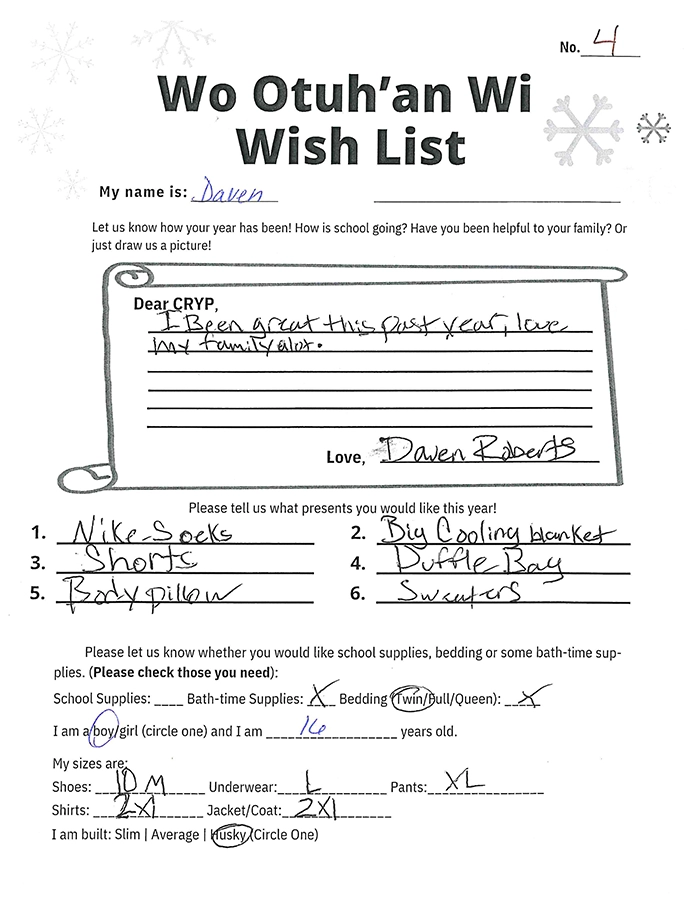 No. 4
Wo Otuh'an Wi
Wish List
My name is: Daven
Let us know how your year has been! How is school going? Have you been helpful to your family? Or
just draw us a picture!
Dear CRYP,
I Been great this past year, love
my family alot.
Love, Daven Roberts
Please tell us what presents you would like this year!
1. Nike Socks 2. Big Cooling blanket
3. Shorts 4. Duffle Bag
5. Body pillow 6. Sweaters
Please let us know whether you would like school supplies, bedding or some bath-time sup-
plies. (Please check those you need):
School Supplies: ____ Bath-time Supplies: X Bedding (Twin/Full/Queen): X
I am a boy/girl (circle one) and I am 16 years old.
My sizes are:
Shoes: 10 M Underwear: L Pants: XL
Shirts: 2Xl Jacket/Coat: 2Xl
I am built: Slim | Average | Husky (Circle One)